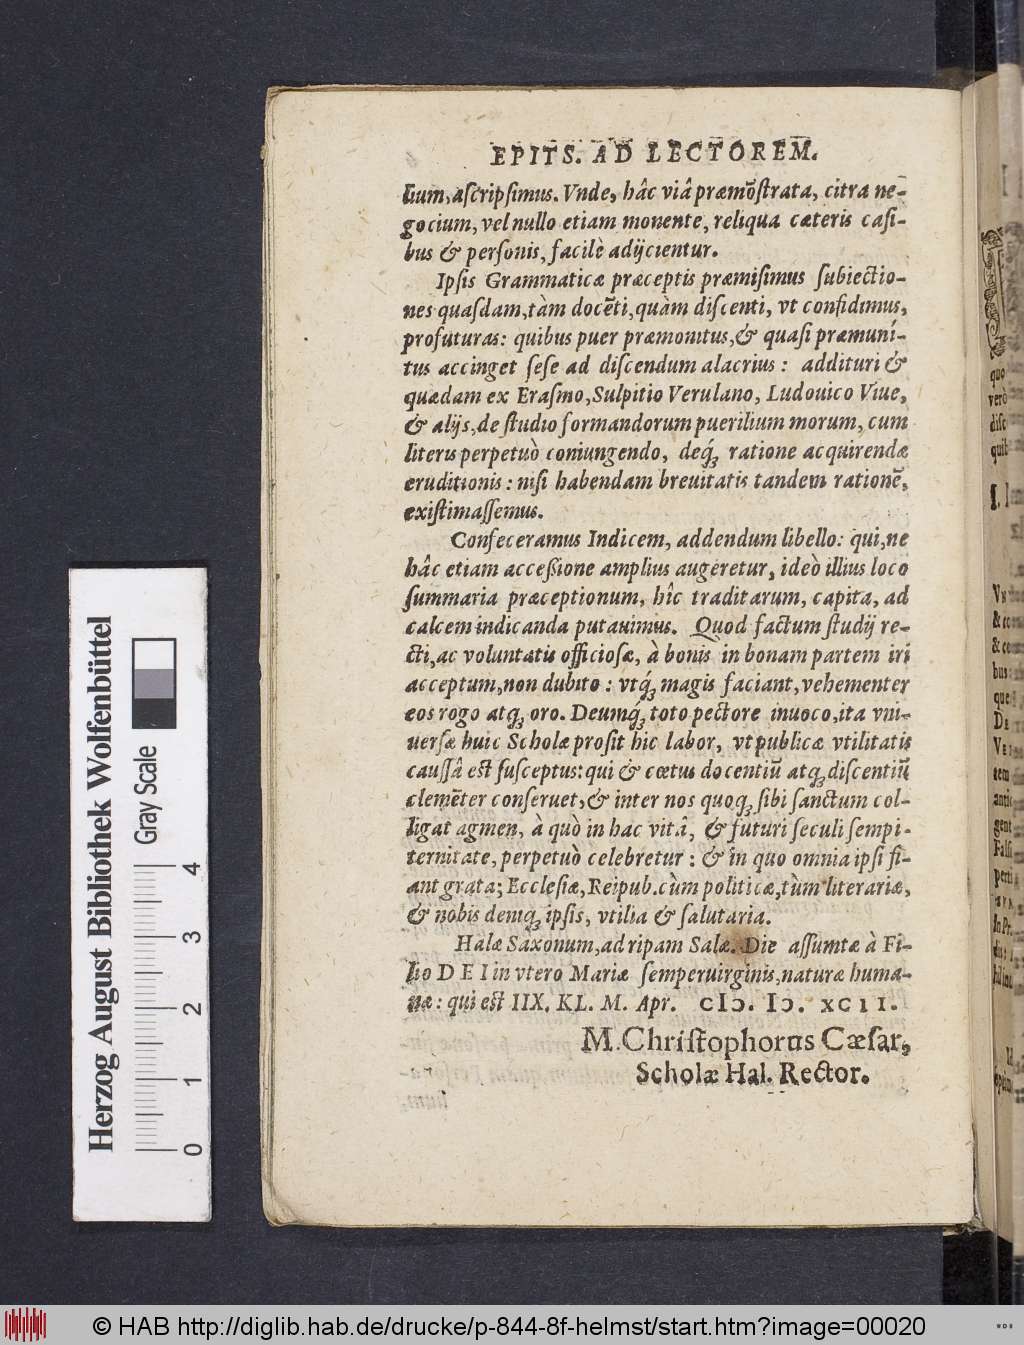 EPITS. AD LECTOREM.
lium, ascripsimus. Vnde, hâc viâ præmõstrata, citra ne-
gocium, vel nullo etiam monente, reliqua cæteris casi-
bus & personis, facilè adijcientur.
Ipsis Grammaticæ præceptis præmisimus subiectio-
nes quasdam, tàm docẽti, quàm discenti, vt confidimus,
profuturas: quibus puer præmonitus, & quasi præmuni-
tus accinget sese ad discendum alacrius: addituri &
quædam ex Erasmo, Sulpitio Verulano, Ludouico Viue,
& alijs, de studio formandorum puerilium morum, cum
literis perpetuò coniungendo, deq́ꝫ ratione acquirendæ
eruditionis: nisi habendam breuitatis tandem rationẽ,
existimassemus.
Confeceramus Indicem, addendum libello: qui, ne
hâc etiam accessione amplius augeretur, ideò illius loco
summaria præceptionum, hîc traditarum, capita, ad
calcem indicanda putauimus. Quod factum studij re-
cti, ac voluntatis officiosæ, à bonis in bonam partem iri
acceptum, non dubito: vtq́ꝫ magis faciant, vehementer
eos rogo atqꝫ oro. Deumq́ꝫ toto pectore inuoco, ita vni-
uersæ huic Scholæ prosit hic labor, vt publicæ vtilitatis
caussâ est susceptus: qui & cœtus docentiũ atqꝫ discentiũ
clemẽter conseruet, & inter nos quoqꝫ sibi sanctum col-
ligat agmen, à quò in hac vitâ, & futuri seculi sempi-
ternitate, perpetuò celebretur: & in quo omnia ipsi fi-
ant grata; Ecclesiæ, Reipub. cùm politicæ, tùm literariæ,
& nobis deniqꝫ ipsis, vtilia & salutaria.
Halæ Saxonum, ad ripam Salæ. Die assumtæ à Fi-
lio DEI in vtero Mariæ semperuirginis, naturæ huma-
næ: qui est IIX. KL. M. Apr. CIↃ. IↃ. XCII.
M. Christophorus Cæsar,
Scholæ Hal. Rector.
quo
verò
disc
quib
Herzog August Bibliothek Wolfenbüttel
Gray Scale
0 1 2 3 4
© HAB http://diglib.hab.de/drucke/p-844-8f-helmst/start.htm?image=00020